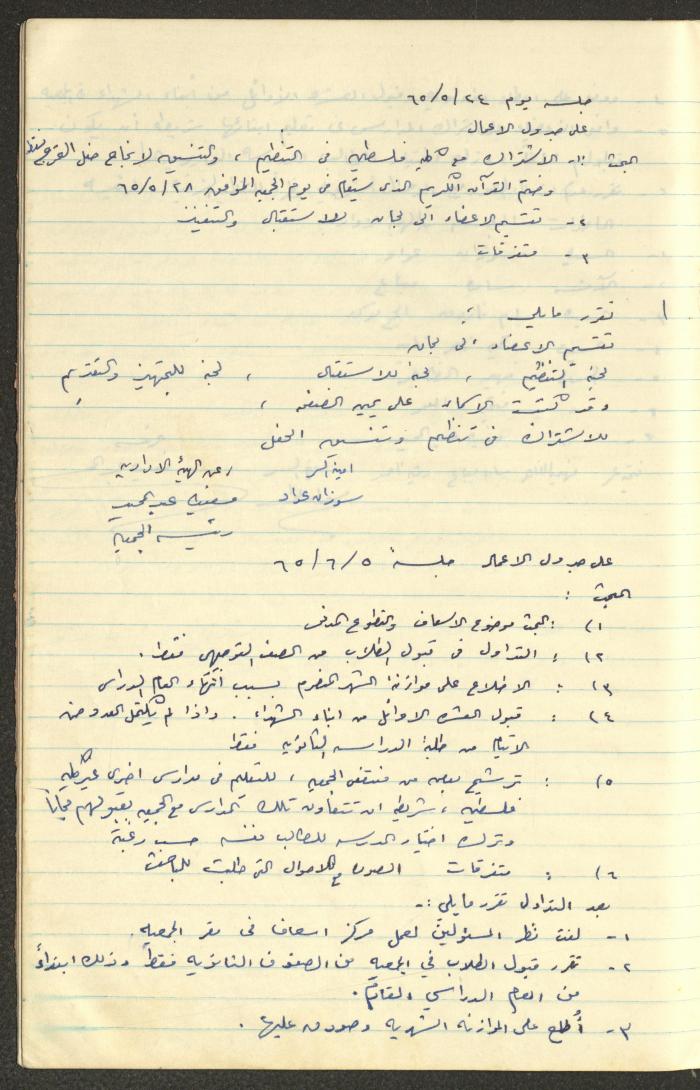 جلسه يوم ٢٤/٥/٦٥
على جدول الاعمال
البحث :١- الاشتراك مع كلية فلسطين فى التنظيم ، والتنسيق لانجاح حفل التخرج فقط
وختم القرآن الكريم الذى سيقام فى يوم الجمعه الموافق ٢٨/٥/٦٥
٢- تقسيم الاعضاء الى لجان للاستقبال والتنفيذ
٣- متفرقات
تقرر مايلي :
تقسيم الاعضاء الى لجان
لجنة التنظيم ، لجنة للاستقبال ، لجنة للتجهيز والتقديم
وقد كتبت الاسماء على يمين الصفحه ،
للاشتراك فى تنظيم وتنسيق الحفل
امينة السر /عن الهيئة الاداريه
سوزان عواد
رئيسة الجمعية
على جدول الاعمال جلسة ٥/٦/٦٥
البحث :
١) : البحث موضوع الاسعاف والتطوع المدنى
٢) : التداول فى قبول الطلاب من الصف التوجيهى فقط .
٣) : الاطلاع على موازنة الشهر المنصرم بسبب انتهاء العام الدراسى
٤) : قبول العشره الاوائل من ابناء الشهداء . واذا لم يكتمل العدد فمن
الايتام من طلبة الدراسه الثانويه فقط
٥) : ترشيح بعضه من منتفعى الجمعيه ، للتعليم فى مدارس اخرى غير كلية
فلسطين ، شريطة ان تتعاون تلك المدارس مع الجمعيه بقبولهم مجاناً
وترك اختيار المدرسه للطالب نفسه حسب رغبته
٦) : متفرقات للاموال التى طلبت
بعد التداول تقرر مايلى :-
١- لفت نظر المسؤولين لعمل مركز اسعاف فى مقر الجمعيه .
٢- تقرر قبول الطلاب في الجمعيه من الصفوف الثانويه فقط وذلك ابتداءً
من العام الدراسي القادم .
٣- أُطلع على الموازنه الشهريه وصودق عليها .